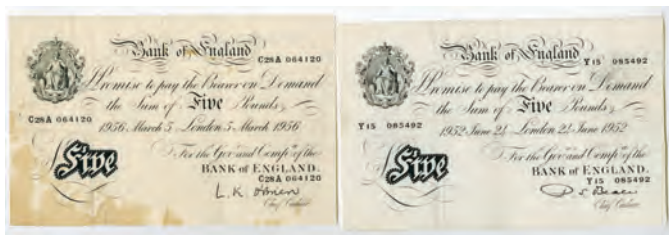 Bank of England
C28A 064120
I Promise to pay the Bearer on Demand
the Sum of Five Pounds
C28A 064120
1956 March 5 London 5 March 1956
For the Govr. and Compa. of the
BANK OF ENGLAND.
C28A 064120
Five
L. K. O'Brien
Chief Cashier
Bank of England
Y15 085492
I Promise to pay the Bearer on Demand
the Sum of Five Pounds
Y15 085492
1952 June 21 London 21 June 1952
For the Govr. and Compa. of the
BANK OF ENGLAND.
Y15 085492
Five
P. S. Beale
Chief Cashier